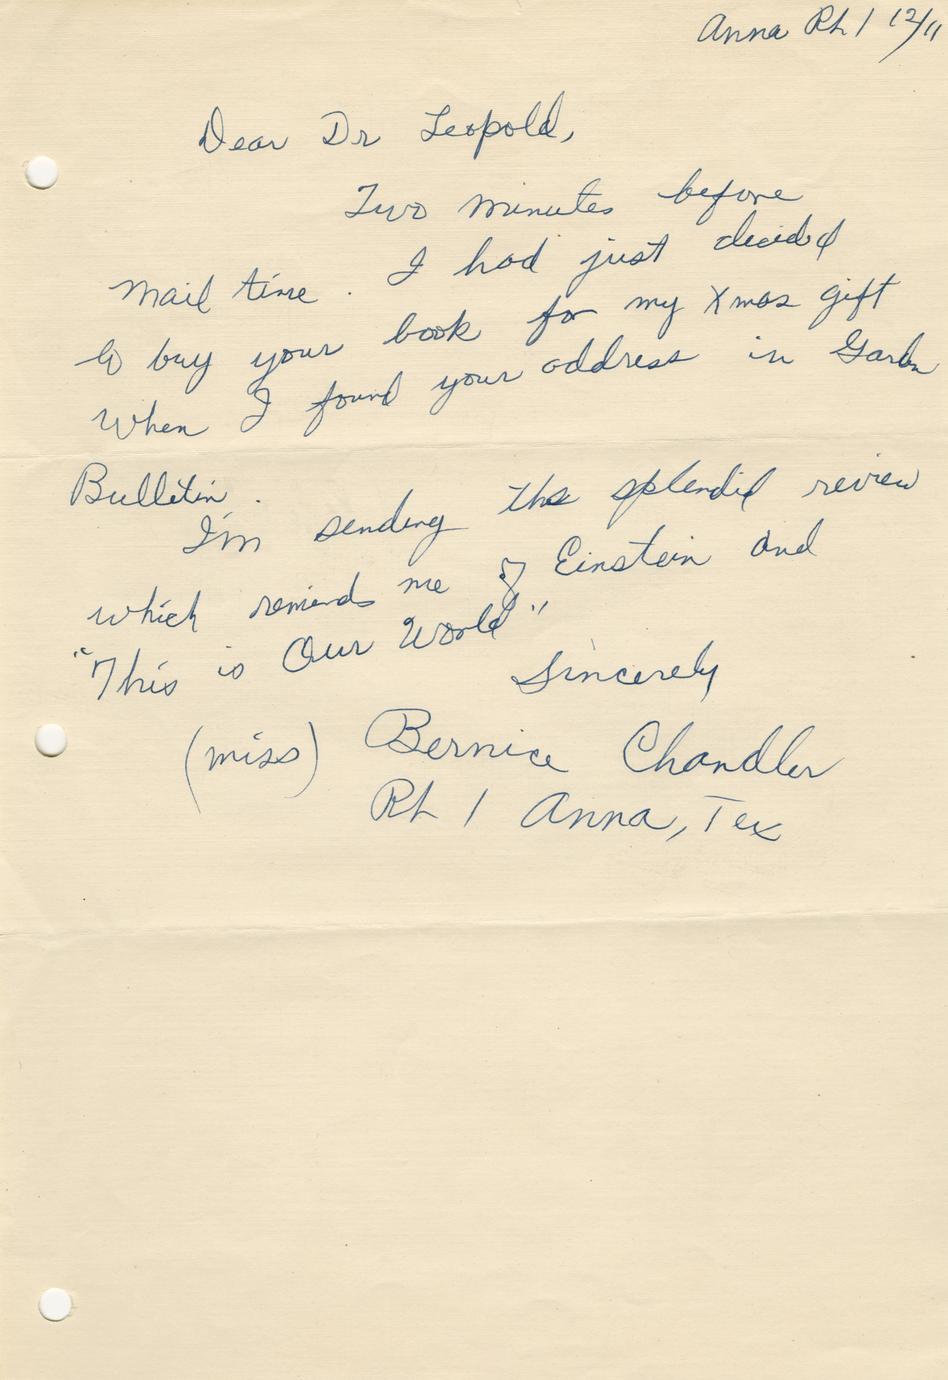 Anna Rt 1 12/11
Dear Dr Leopold,
Two minutes before
mail time. I had just decided
to buy your book for my Xmas gift
when I found your address in Garden
Bulletin.
I'm sending this splendid review
which reminds me of Einstein and
"This is Our World"
Sincerely
(Miss) Bernice Chandler
Rt 1 Anna, Tex